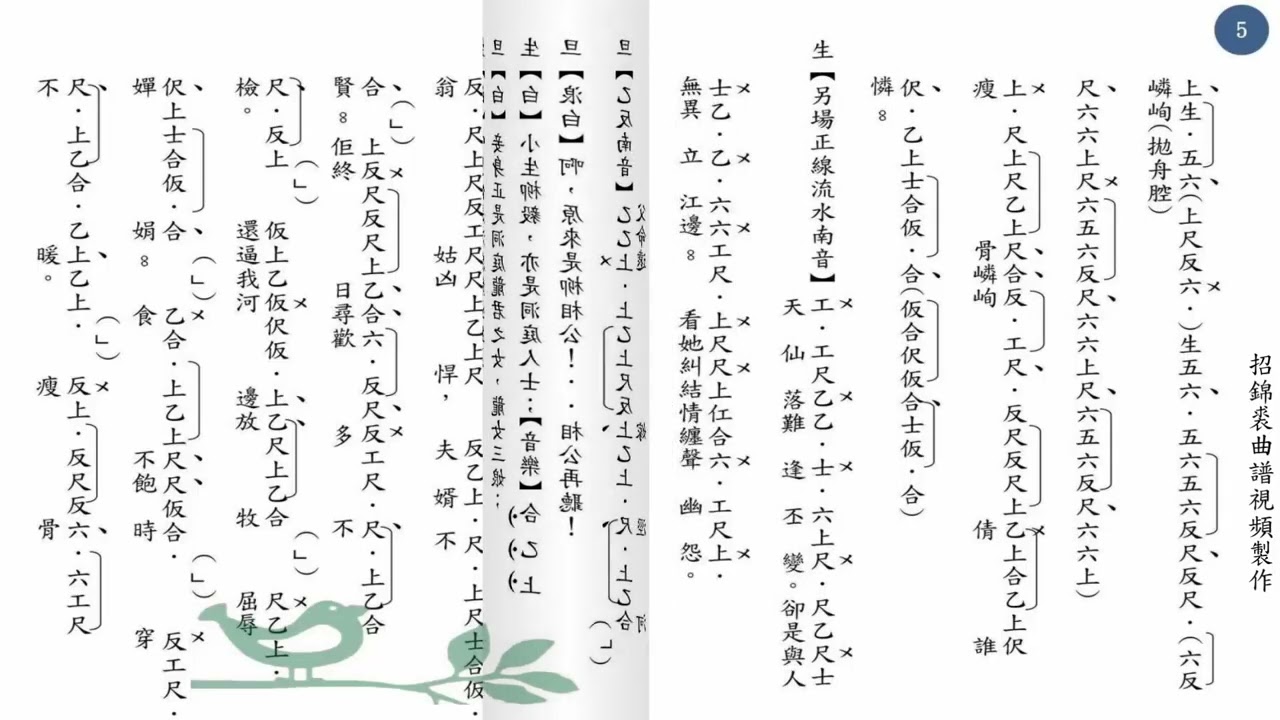 5
招錦裘曲譜視頻製作
上生．五六(上尺反六．)生五六．五六五六反尺反尺．(六反
嶙峋(拋舟腔)
尺六六上尺六五六反尺六六上尺六五六反尺六六上)
上．尺上尺乙上尺合反．工尺．反尺反尺上乙上合乙上伬
瘦 骨嶙峋 倩 誰
伬．乙上士合仮．合(仮合伬仮合士仮．合)
憐。
生【另場正線流水南音】工．工尺乙乙．士．六上尺．尺乙尺士
天仙落難逢丕變。卻是與人
士乙．乙．六六工尺．上尺尺上仜合六．工尺上．
無異立江邊。看她糾結情纏聲幽怨。
父命遠 嫁 涇 河
旦【乙反南音】乙乙上．上乙上尺反上乙上．尺．上乙合(乚)
旦【浪白】啊，原來是柳相公！．．相公再聽！
生【白】小生柳毅，亦是洞庭人士；【音樂】合乙上
旦【白】妾身正是洞庭龍君之女，龍女三娘；
反．尺上尺反工尺尺上乙上尺 反乙上．尺．上尺士合仮．
翁 姑凶 悍， 夫 婿 不
合．(乚)上反尺反尺上乙合六．反尺反工尺．尺．上乙合
賢。佢終 日尋歡 多 不
尺．反上(乚)仮上乙仮伬仮．上乙尺上乙合(乚)尺乙上．
檢。 還逼我河 邊放 牧 屈辱
伬上士合仮．合(乚)乙合．上乙上尺尺仮合．(乚)反工尺．
嬋 娟。 食 不飽 時 穿
尺．上乙合．乙上乙上．(乚)反上．反尺反六．六工尺
不 暖。 瘦 骨